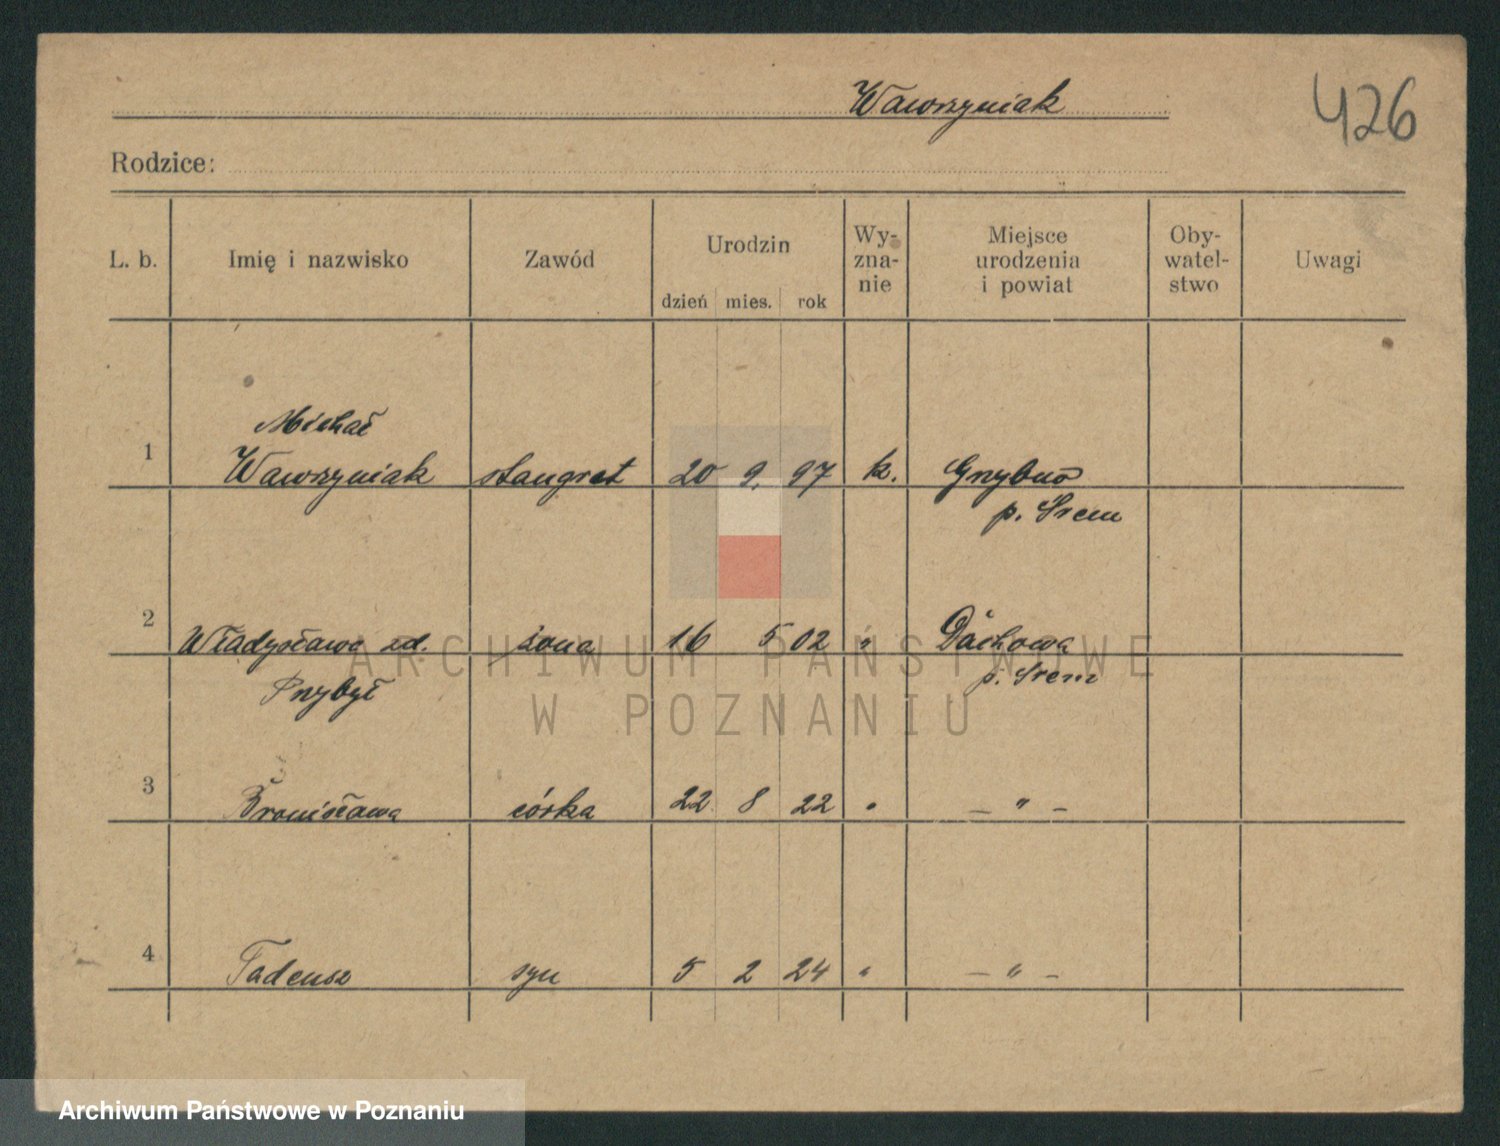 Wawrzyniak
426
Rodzice:
L. b. Imię i nazwisko Zawód Urodzin dzień mies. rok Wy-zna-nie Miejsce urodzenia i powiat Oby-watel-stwo Uwagi
Michał
1 Wawrzyniak stangret 20 9. 97 k. Grzybno
p. Śrem
2 Władysława zd. żona 16 5 02 " Dachowa
Przybył p. Śrem
3 Bronisława córka 22 8 22 " — " —
4 Tadeusz syn 5 2 24 " — " —
ARCHIWUM PAŃSTWOWE
W POZNANIU
Archiwum Państwowe w Poznaniu